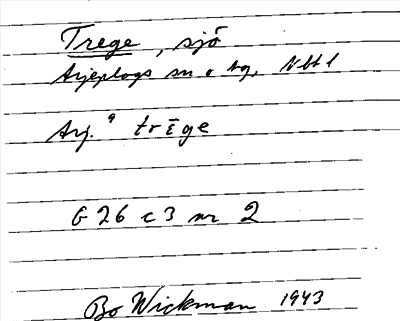 Trege, sjö
Arjeplogs sn o tg, Nbt l
Arj. ª trīge
G 26 c 3 nr 2
Bo Wickman 1943